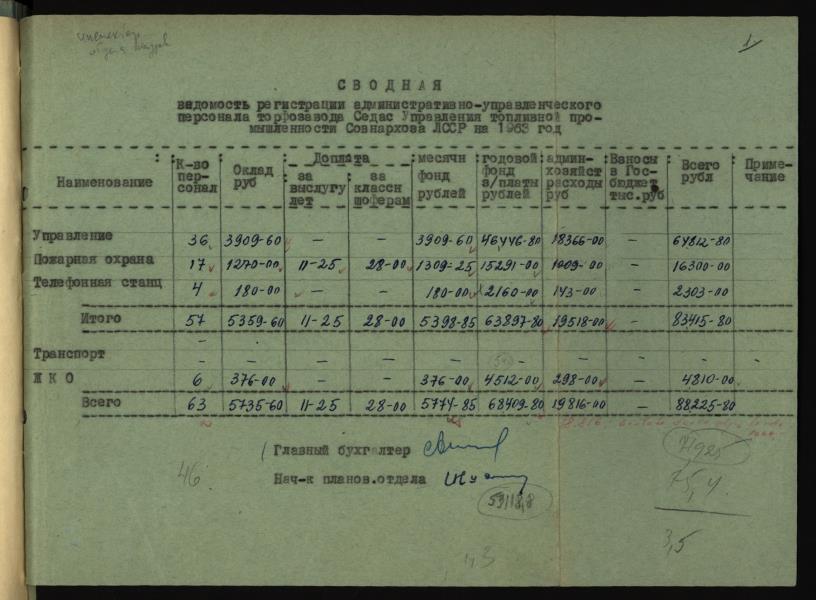 1.
СВОДНАЯ
ведомость регистрации административно-управленческого
персонала торфозавода Седас Управления топливной про-
мышленности Совнархоза ЛССР на 1963 год
Наименование К-во персонал Оклад руб Доплата за выслугу лет за классн шоферам месячн фонд рублей годовой фонд з/платы рублей админ-хозяйст расходы руб Взносы в Гос-бюджет тыс.руб Всего рубл Приме-чание
Управление 36 3909-60 — — 3909-60 46446-80 18366-00 — 64812-80
Пожарная охрана 17 1270-00 11-25 28-00 1309-25 15291-00 1009-00 — 16300-00
Телефонная станц 4 180-00 — — 180-00 2160-00 143-00 — 2303-00
Итого 57 5359-60 11-25 28-00 5398-85 63897-80 19518-00 — 83415-80
Транспорт — — — — — — — — —
ЖКО 6 376-00 — — 376-00 4512-00 298-00 — 4810-00
Всего 63 5735-60 11-25 28-00 5774-85 68409-80 19816-00 — 88225-80
Главный бухгалтер
46.
Нач-к планов.отдела
75,4
3,5